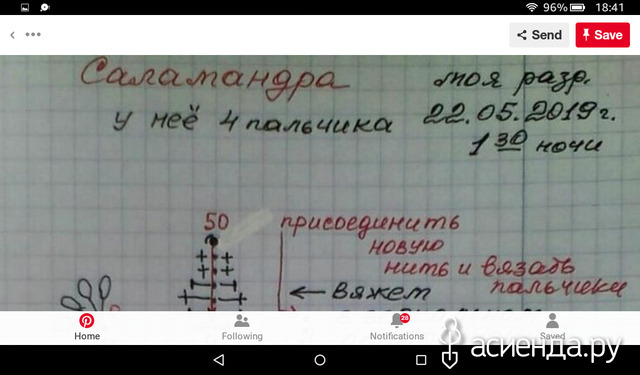 96% 18:41
Send Save
Саламандра моя разр.
у неё 4 пальчика 22.05.2019г.
1 30 ночи
50 присоединить
новую
нить и вязать
пальчики
← вяжет
Home Following Notifications 28 Saved
асиенда.ру